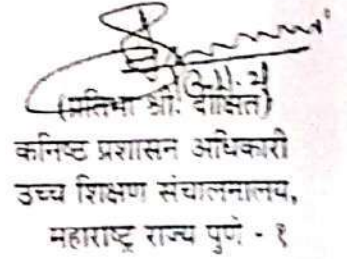 (प्रतिभा श्री. दीक्षित)
कनिष्ठ प्रशासन अधिकारी
उच्च शिक्षण संचालनालय,
महाराष्ट्र राज्य पुणे - १